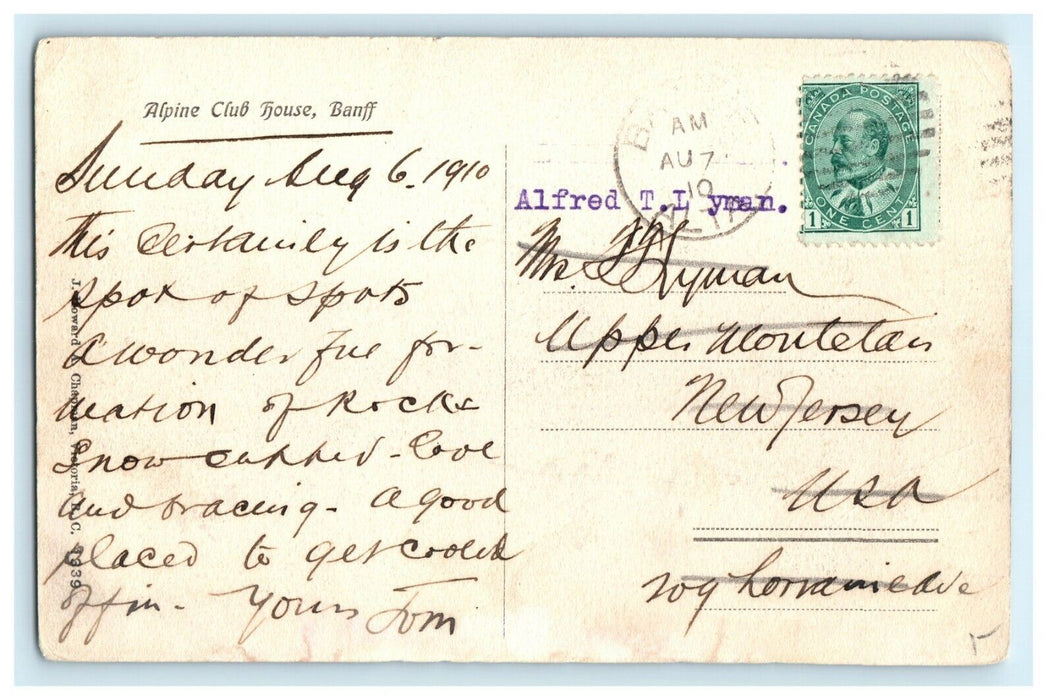 Alpine Club House, Banff
Sunday Aug 6. 1910
this certainly is the
spot of spots
a wonder ful for-
mation of Rocks
Snow capped - Cool
and bracing - a good
placed to get cooled
off in - Yours Tom
J. Howard A. Chapman, Victoria, B. C. 1939
AM
AU 7
10
ALTA
CANADA POSTAGE
1 ONE CENT 1
Alfred T. Lyman.
Mr. Lyman
Upper Montclair
New Jersey
USA
109 Lorraine Ave